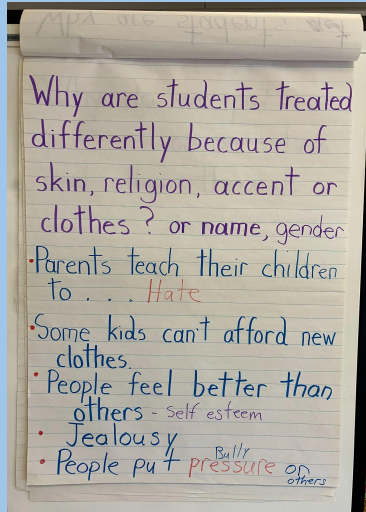 Why are students treated
differently because of
skin, religion, accent or
clothes? or name, gender
• Parents teach their children
to . . . Hate
• Some kids can't afford new
clothes.
• People feel better than
others - self esteem
• Jealousy
Bully
• People put pressure on
others